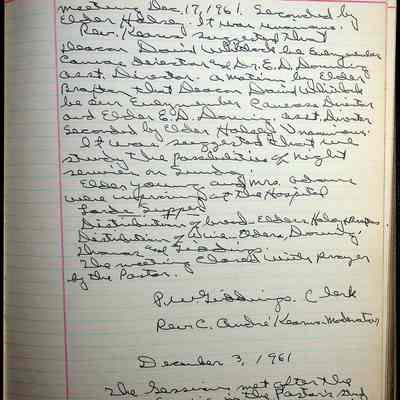 meeting Dec. 17, 1961. Seconded by
Elder Halsey. It was unanimous.
Rev. Kearns suggested that
Deacon David Whitlock be Everymember
Canvass Director and Dr. E. D. Downing
asst. Director. A motion by Elder
that Deacon David Whitlock
be our Everymember Canvass Director
and Elder E. D. Downing, asst. Director
Seconded by Elder Halsey Unanimous.
It was suggested that we
study the possibilities of night
service on Sunday.
Elder Young and Mrs. Adams
were improving at the Hospital
Lords Supper
Distribution of bread - Elders,
Distribution of Wine Elders, Downing,
Thomas and Giddings.
The meeting closed with prayer
by the Pastor.
P. W. Giddings. Clerk
Rev. C. André Kearns - Moderator
December 3, 1961
The Session met after the
in the Pastor's study